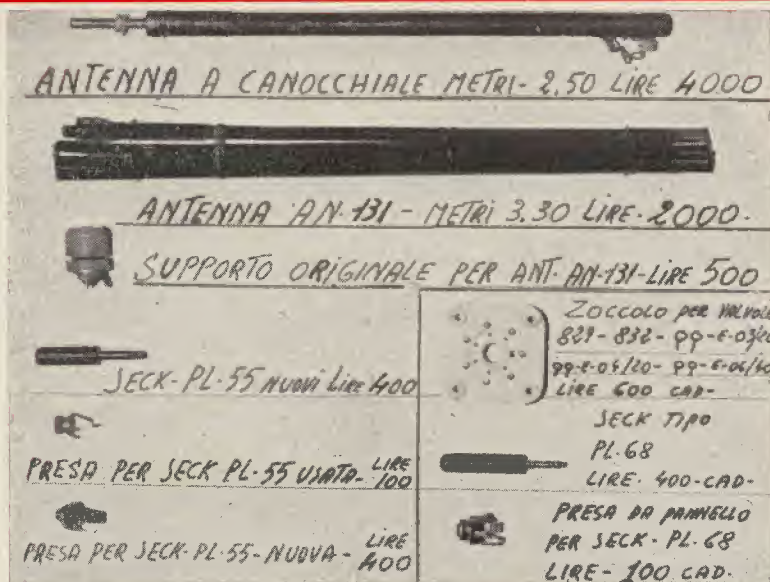 ANTENNA A CANOCCHIALE METRI- 2,50 LIRE 4000
ANTENNA AN-131 - METRI 3.30 LIRE-2000-
SUPPORTO ORIGINALE PER ANT. AN-131-LIRE 500
SECK-PL-55 NUOVI Lire 400
PRESA PER SECK PL-55 USATA- LIRE
100
PRESA PER SECK-PL-55-NUOVA- LIRE
400
ZOCCOLO PER VALVOLE
829-832-QQ-E-03/20
QQ-E-04/20- QQ-E-06/40
LIRE 600 CAD-
SECK TIPO
PL-68
LIRE- 400-CAD-
PRESA DA PANNELLO
PER SECK- PL-68
LIRE- 100 CAD.